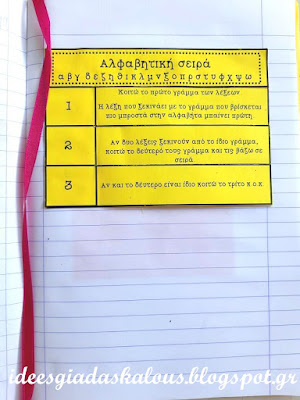 Αλφαβητική σειρά
α β γ δ ε ζ η θ ι κ λ μ ν ξ ο π ρ σ τ υ φ χ ψ ω
1
Κοιτώ το πρώτο γράμμα των λέξεων.
Η λέξη που ξεκινάει με το γράμμα που βρίσκεται
πιο μπροστά στην αλφαβήτα μπαίνει πρώτη
2
Αν δυο λέξεις ξεκινούν από το ίδιο γράμμα,
κοιτώ το δεύτερό τους γράμμα και τις βάζω σε
σειρά.
3
Αν και το δεύτερο είναι ίδιο κοιτώ το τρίτο κ.ο.κ
ideesgiadaskalous.blogspot.gr